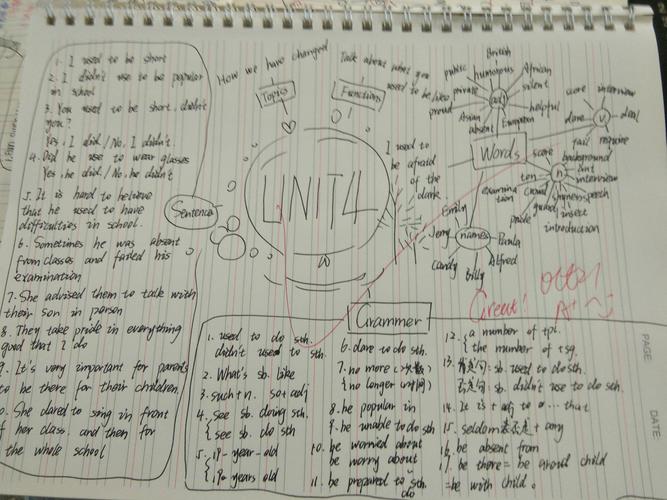 1. I used to be short
2. I didn't use to be popular
in school
3. You used to be short, didn't
you?
Yes, I did / No, I didn't.
4. Did he use to wear glasses
Yes, he did / No he didn't
5. It is hard to believe
that he used to have
difficulties in school.
6. Sometimes he was absent
from classes and failed his
examination
7. She advised them to talk with
their son in person
8. They take pride in everything
good that I do
9. It's very important for parents
to be there for their children.
She dared to sing in front
of her class and then for
the whole school
Sentence
How we have changed
Topics
Talk about what you
used to be like
Functions
UNIT4
I used to
be afraid
of the
dark
Words
adj
British
African
silent
helpful
European
absent
Asian
proud
private
public
humorous
v
score
interview
deal
require
fail
dare
n
score
background
interview
speech
insect
introduction
guard
pride
crowd
examina
tion
ton
names
Emily
Jerry
Candy
Billy
Alfred
Paula
Great!
A+
Grammer
1. used to do sth.
didn't used to sth.
2. What's sb. like
3. such+n. so+adj
4. see sb. doing sth.
see sb. do sth
5. 19-year-old
19 years old
6. dare to do sth.
7. no more
no longer (时间)
8. be popular in
9. be unable to do sth
10. be worried about
be worry about
11. be prepared to sth
do
12. a number of + pl.
the number of + sg.
13. 肯定句: sb. used to do sth.
否定句: sb. didn't use to do sth.
14. It is + adj to that
15. seldom + any
16. be absent from
17. be there = be around child
= be with child.
PAGE
DATE